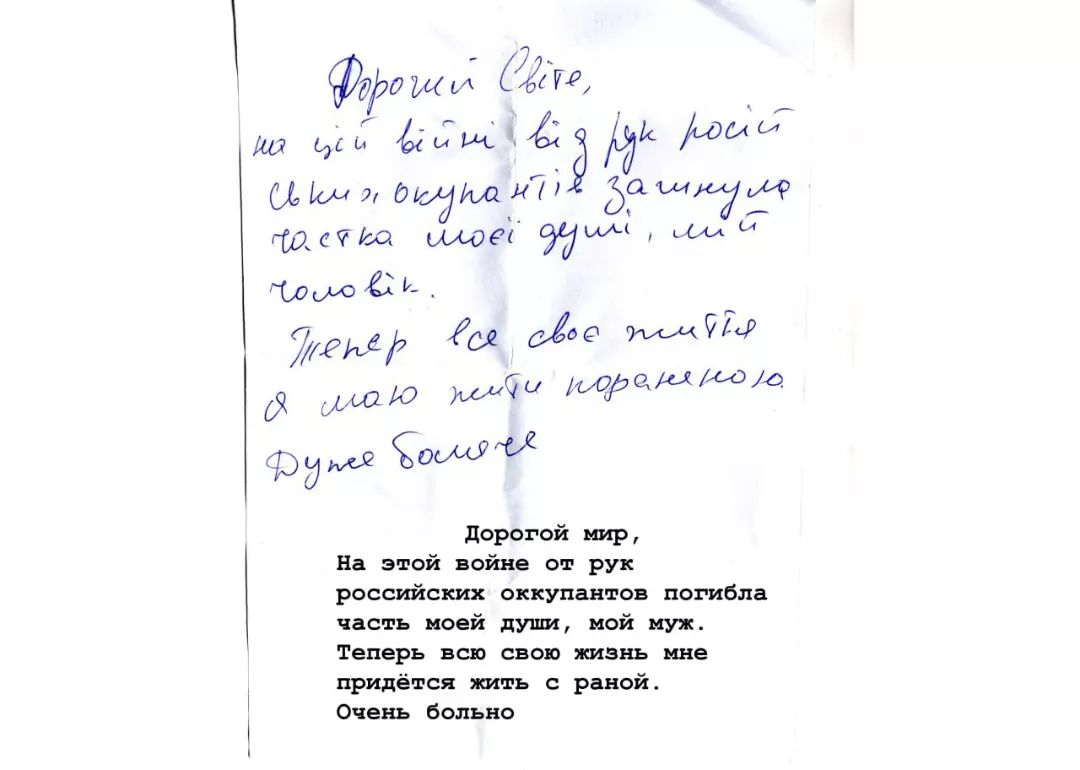 Дорогий Світе,
на цій війні від рук росій
ських окупантів загинула
частка моєї душі, мій
чоловік.
Тепер все своє життя
я маю жити пораненою
Дуже боляче
Дорогой мир,
На этой войне от рук
российских оккупантов погибла
часть моей души, мой муж.
Теперь всю свою жизнь мне
придётся жить с раной.
Очень больно